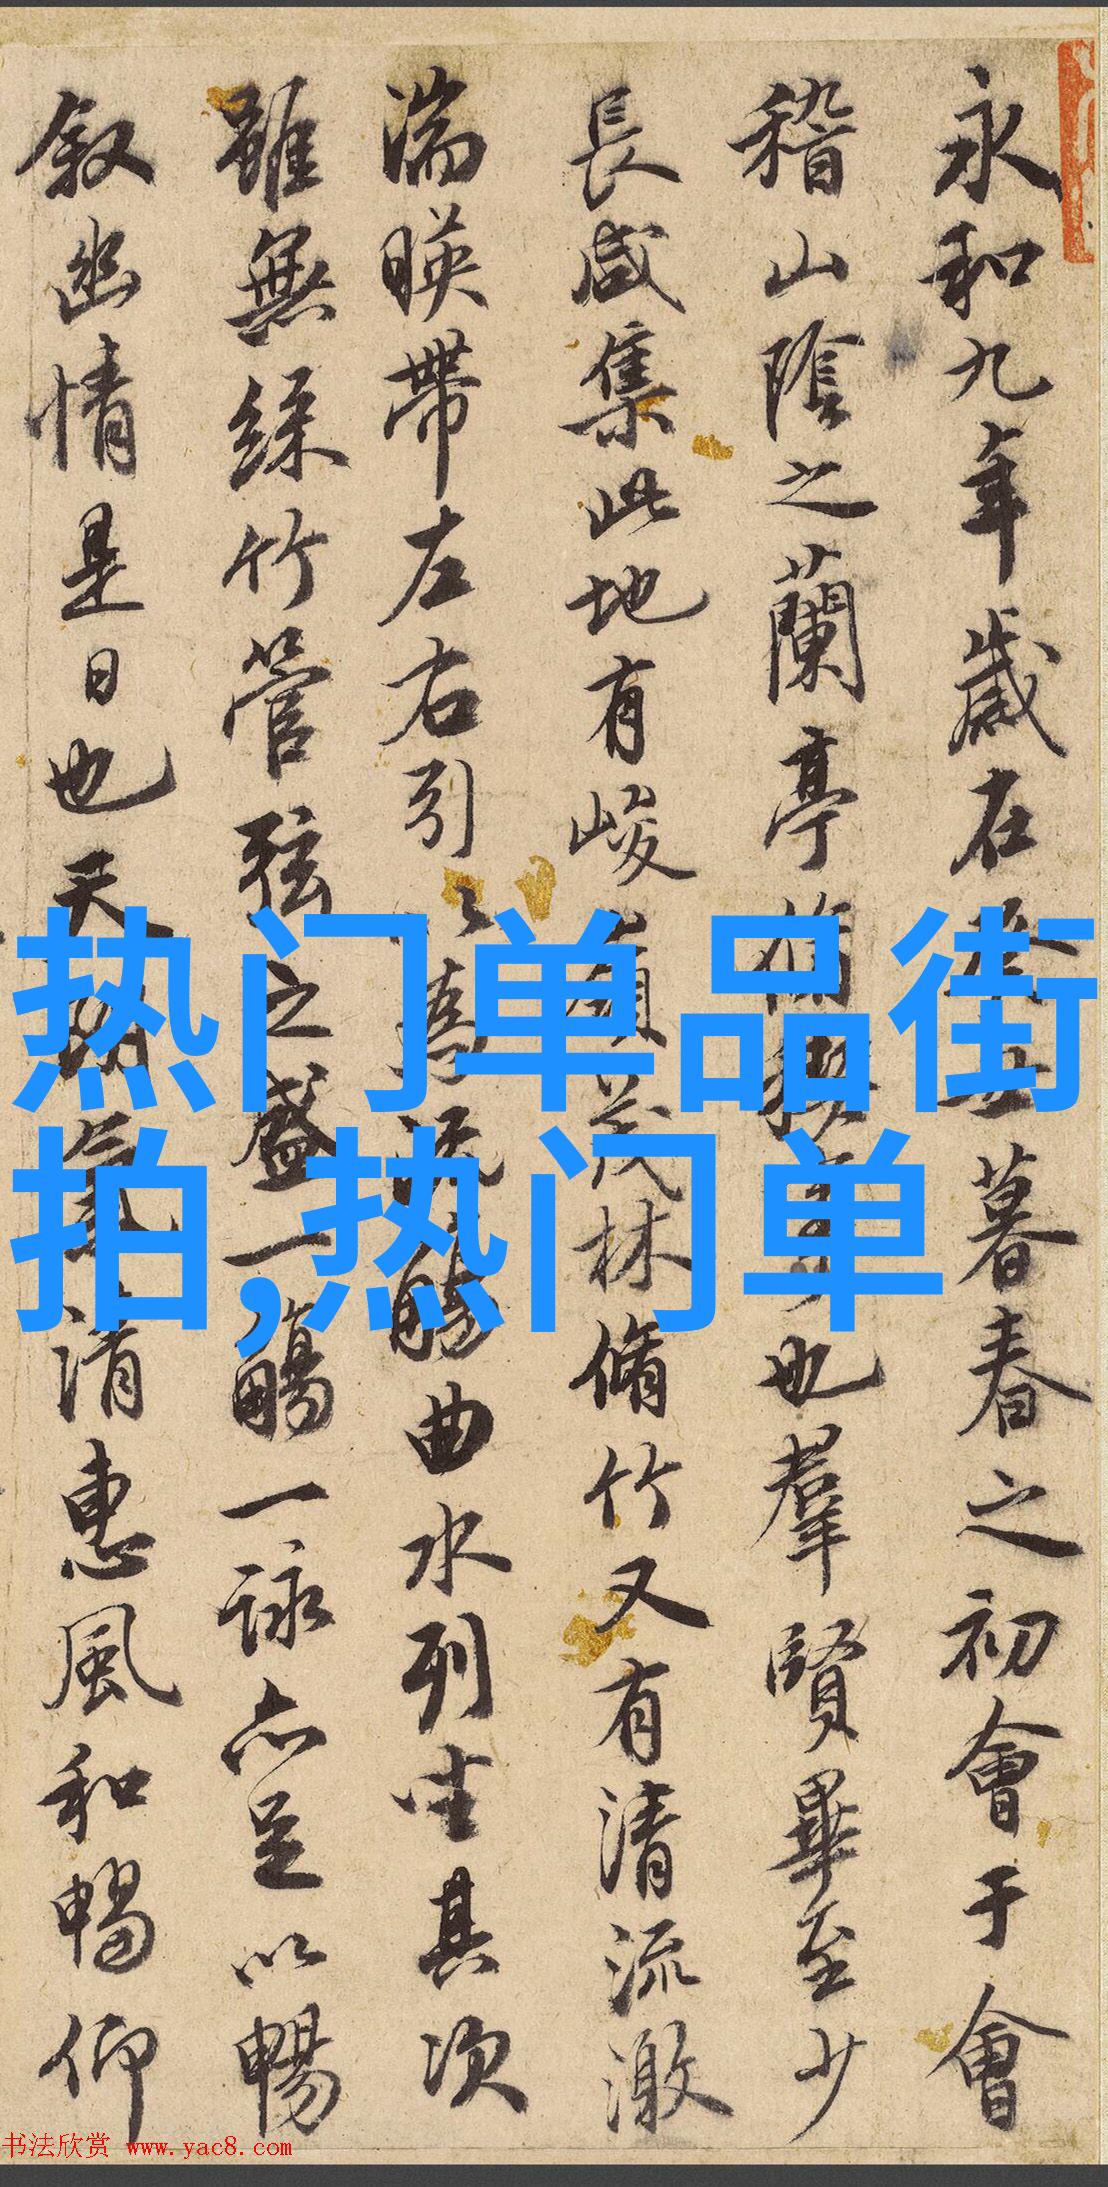 永和九年歲在癸丑暮春之初會于會
稽山陰之蘭亭脩禊也羣賢畢至少
長咸集此地有峻領茂林脩竹又有清流激
湍暎帶左右引以為流觴曲水列坐其次
雖無絲竹管弦之盛一觴一詠亦足以暢
叙幽情是日也天朗氣清惠風和暢仰
热门单品街
拍,热门单
书法欣赏 www.yac8.com